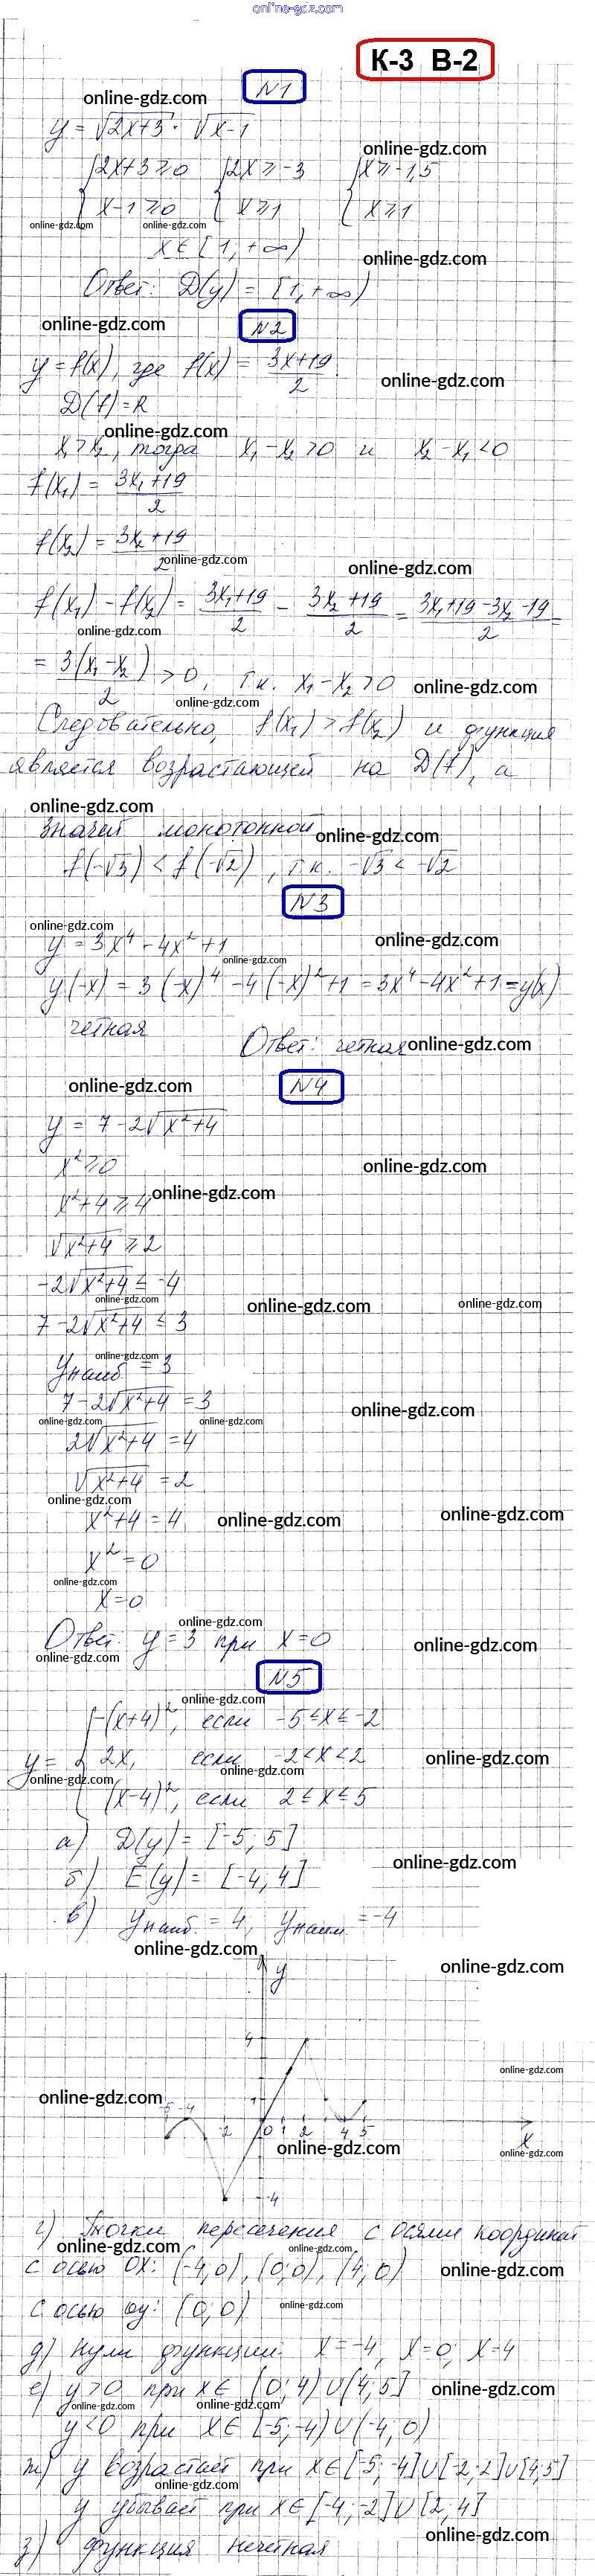 online-gdz.com
К-3 В-2
N1
online-gdz.com
y = √(2x+3) · √(x-1)
online-gdz.com
{2x+3 ≥ 0 {2x ≥ -3 {x ≥ -1,5
{x-1 ≥ 0 {x ≥ 1 {x ≥ 1
online-gdz.com online-gdz.com
x ∈ [1, +∞)
online-gdz.com
Ответ: D(y) = [1, +∞)
online-gdz.com
N2
y = f(x), где f(x) = (3x+19)/2
online-gdz.com
D(f) = R
online-gdz.com
x₁ > x₂, тогда x₁ - x₂ > 0 и x₂ - x₁ < 0
f(x₁) = (3x₁+19)/2
f(x₂) = (3x₂+19)/2
online-gdz.com
online-gdz.com
f(x₁) - f(x₂) = (3x₁+19)/2 - (3x₂+19)/2 = (3x₁+19-3x₂-19)/2 =
online-gdz.com
= 3(x₁-x₂)/2 > 0, т.к. x₁ - x₂ > 0
online-gdz.com
online-gdz.com
Следовательно, f(x₁) > f(x₂) и функция
является возрастающей на D(f), а
online-gdz.com
значит монотонной
online-gdz.com
f(-√3) < f(-√2), т.к. -√3 < -√2
N3
online-gdz.com
y = 3x⁴ - 4x² + 1
online-gdz.com
online-gdz.com
y(-x) = 3(-x)⁴ - 4(-x)² + 1 = 3x⁴ - 4x² + 1 = y(x)
четная
Ответ: четная
online-gdz.com
online-gdz.com
N4
y = 7 - 2√(x²+4)
x² ≥ 0
online-gdz.com
x²+4 ≥ 4
online-gdz.com
√(x²+4) ≥ 2
-2√(x²+4) ≤ -4
online-gdz.com
online-gdz.com
online-gdz.com
7 - 2√(x²+4) ≤ 3
online-gdz.com
yнаиб = 3
7 - 2√(x²+4) = 3
online-gdz.com
online-gdz.com online-gdz.com
2√(x²+4) = 4
√(x²+4) = 2
online-gdz.com
x²+4 = 4
online-gdz.com
online-gdz.com
x² = 0
online-gdz.com
x = 0
online-gdz.com
Ответ: y = 3 при x = 0
online-gdz.com
online-gdz.com
N5
online-gdz.com
-(x+4)², если -5 ≤ x ≤ -2
y = { 2x, если -2 < x < 2
online-gdz.com
online-gdz.com online-gdz.com
(x-4)², если 2 ≤ x ≤ 5
а) D(y) = [-5; 5]
online-gdz.com
б) E(y) = [-4; 4]
в) yнаиб. = 4, yнаим. = -4
online-gdz.com
online-gdz.com
y
4
online-gdz.com
online-gdz.com
1
-5 -4 -2 0 1 2 4 5
x
online-gdz.com
online-gdz.com
-4
г) Точки пересечения с осями координат
online-gdz.com online-gdz.com
с осью OX: (-4; 0), (0; 0), (4; 0)
online-gdz.com
с осью oy: (0; 0)
online-gdz.com
д) нули функции: x = -4, x = 0; x = 4
е) y > 0 при x ∈ (0; 4) ∪ (4; 5]
online-gdz.com
online-gdz.com online-gdz.com
y < 0 при x ∈ [-5; -4) ∪ (-4; 0)
ж) y возрастает при x ∈ [-5; -4] ∪ [-2; 2] ∪ [4; 5]
online-gdz.com
y убывает при x ∈ [-4; -2] ∪ [2; 4]
online-gdz.com
з) функция нечетная